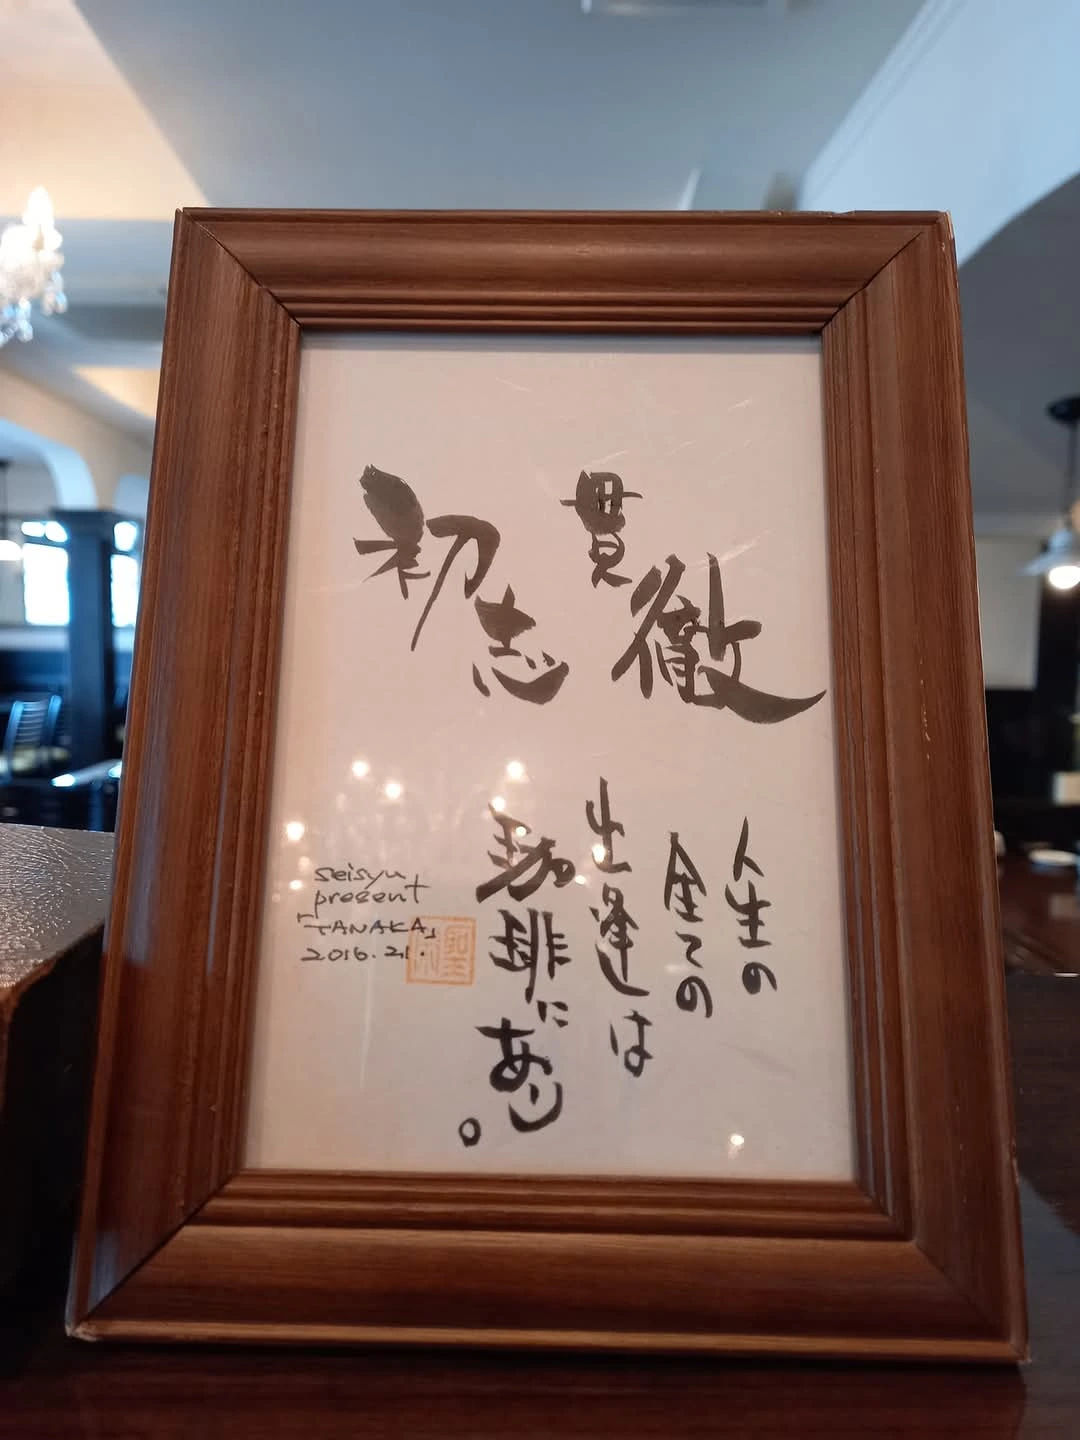 初志
貫徹
人生の
全ての
出逢は
珈琲にあり。
seisyu
present
「TANAKA」
2016.21.